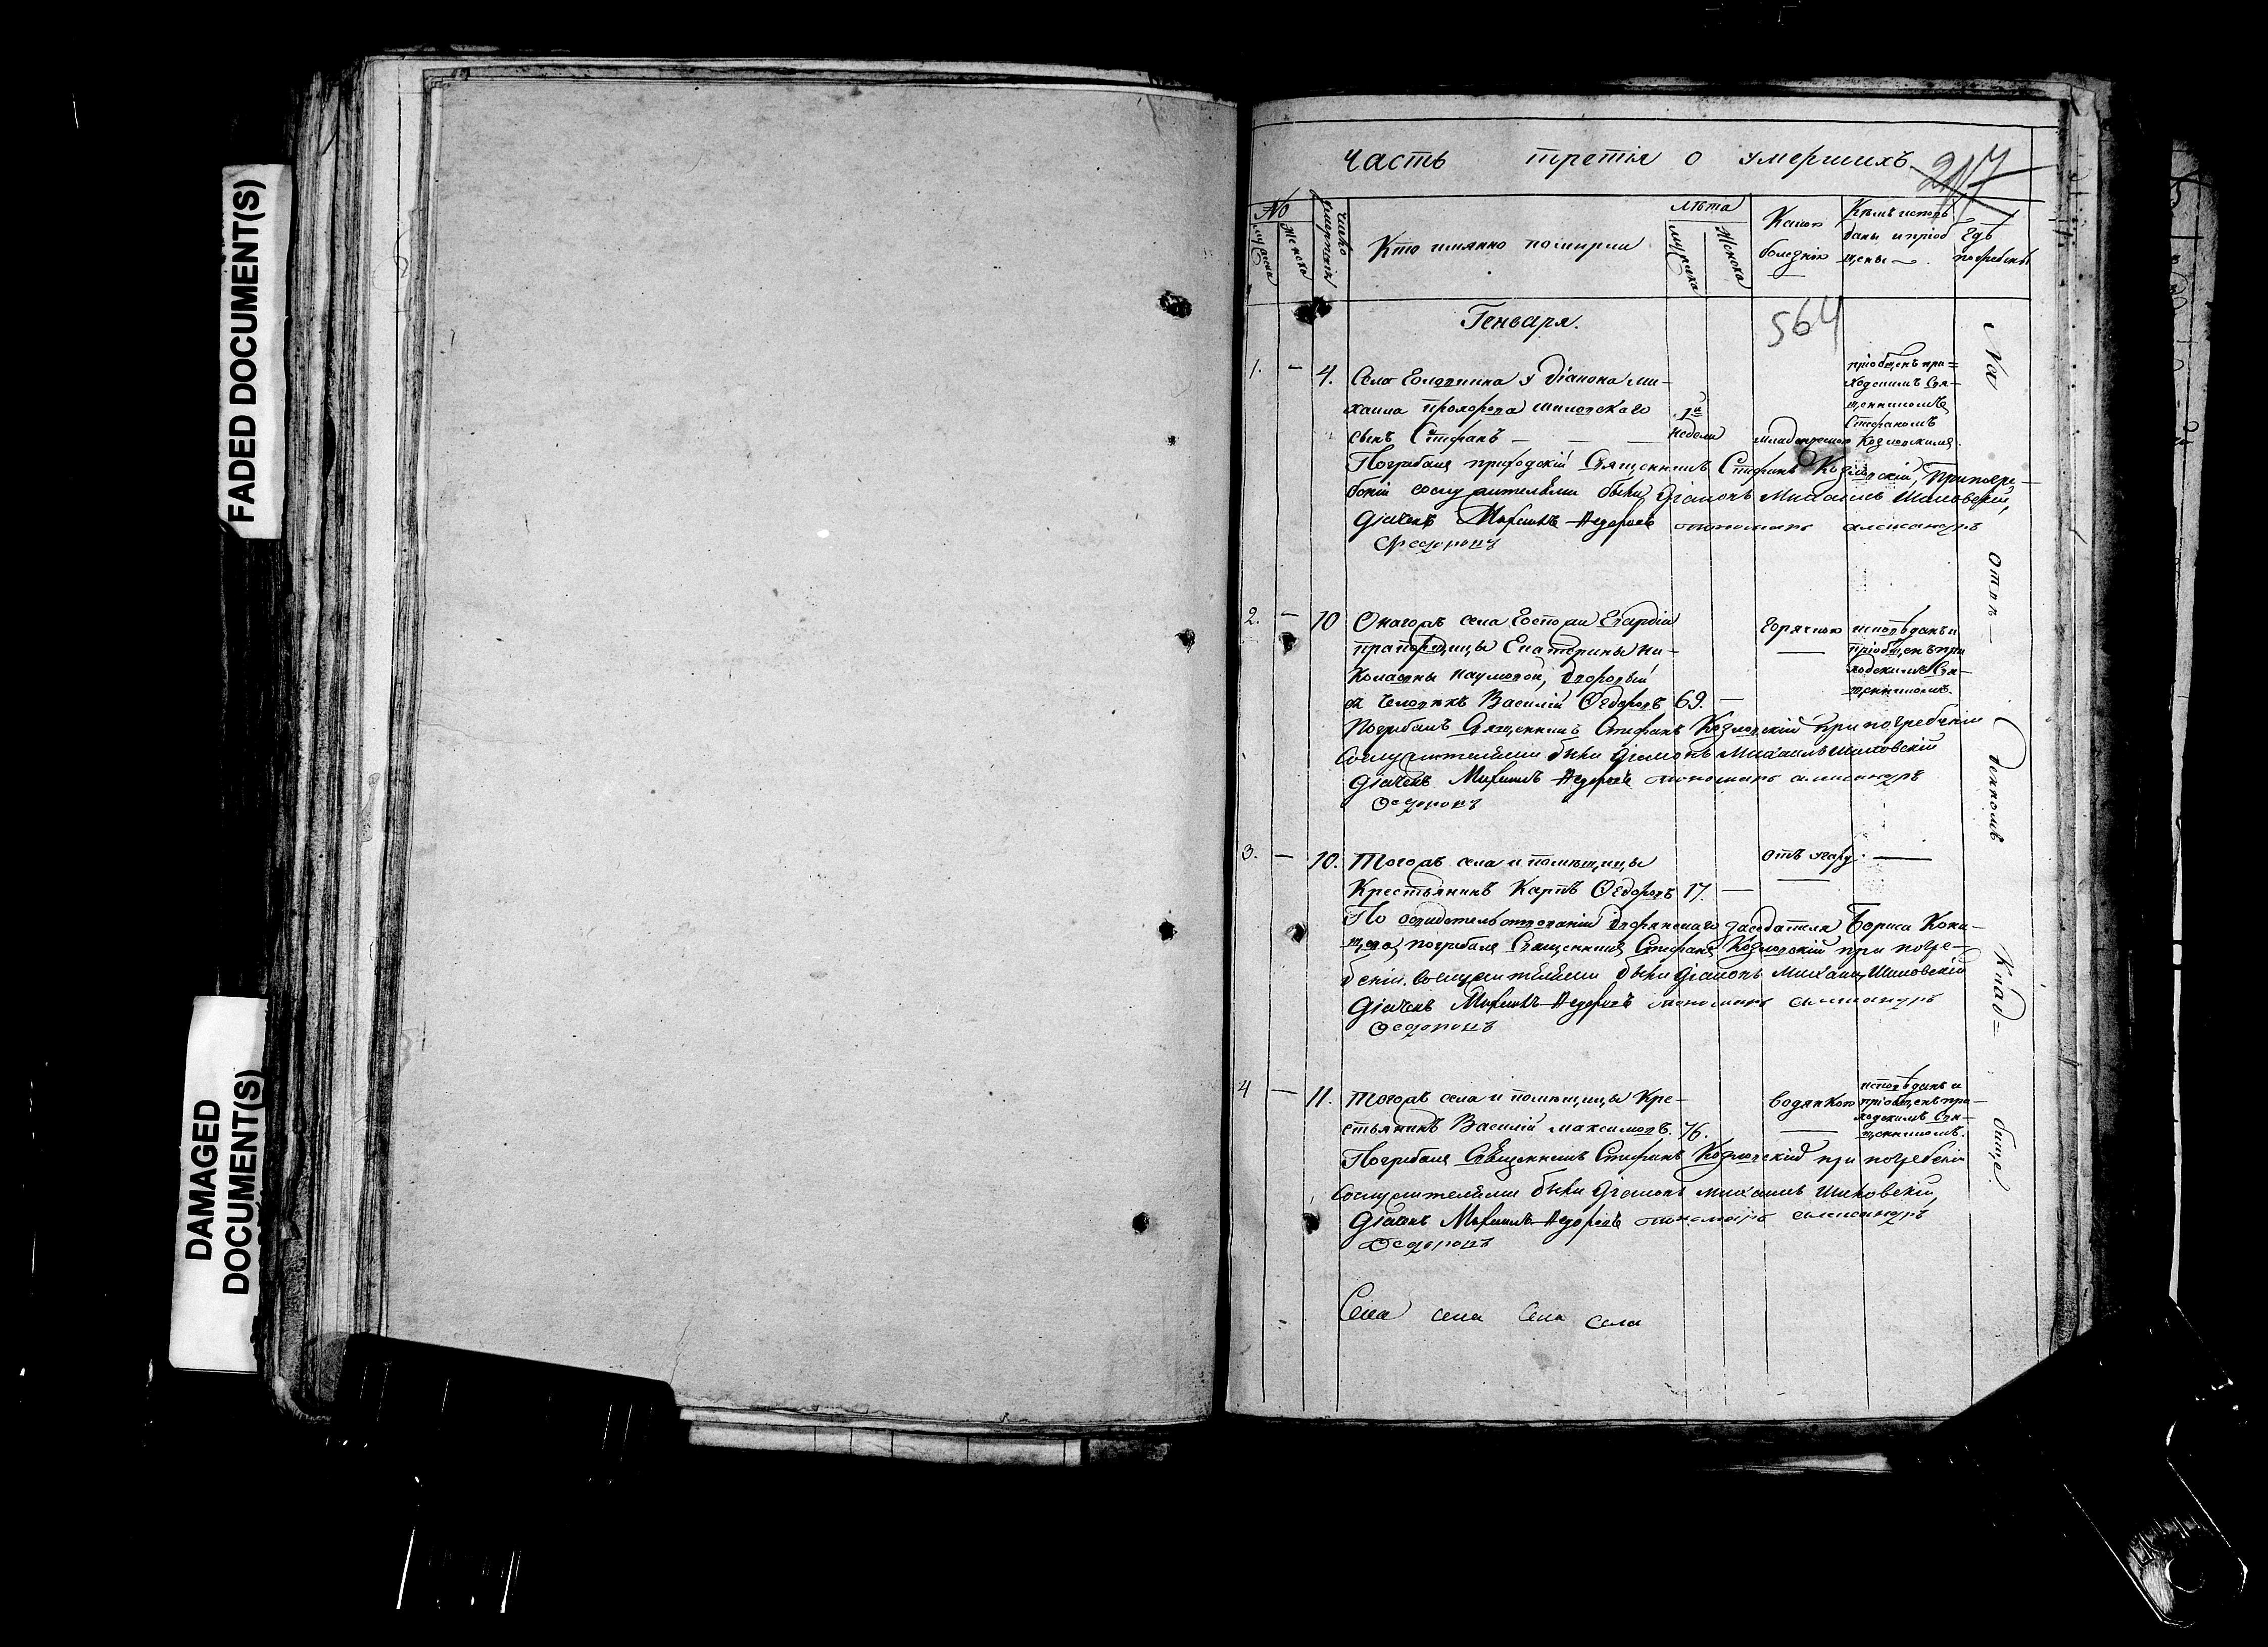 FADED DOCUMENT(S)
DAMAGED
DOCUMENT(S)
Часть третія о умершихъ
217
№
мужеска
женска
Число
умертвія
Кто имянно померли
лѣта
мужеска
Женска
Какою
болезнію
Кѣмъ исповѣ
даны и пріоб
щены
Гдѣ
погребены
Генваря.
564
1. — 4. Села у Діакона Ми-
хаила Прохорова Шиловскаго
сынъ Стефанъ — — — 1й недели младенческою
пріобщенъ при=
ходскимъ Свя-
щенникомъ
Стефаномъ
Козловскимъ.
Погребалъ приходскій Священникъ Стефанъ Козловскій, при погре-
беніи сослужителями были Діаконъ Михаилъ Шиловскій,
Діачекъ пономарь Александръ
Федоровъ
2. — 10 Онагожъ села Госпожи Гвардіи
прапорщицы Екатерины Ни-
колаевны Наумовой, дворовый
человѣкъ Василій Ѳедоровъ 69. —
горячкою
исповѣданъ и
пріобщенъ при
ходскимъ Свя-
щенникомъ.
Погребалъ Священникъ Стефанъ Козловскій при погребеніи
сослужителями были Діаконъ Михаилъ Шиловскій
Діачекъ пономарь Александръ
Ѳедоровъ
3. — 10. Тогожъ села и помѣщицы
Крестьянинъ Карпъ Ѳедоровъ 17. —
отъ угару. —
По освидетельствованіи дворянскаго заседателя Бориса
погребалъ Священникъ Стефанъ Козловскій при погре-
беніи сослужителями были Діаконъ Михаилъ Шиловскій
Діачекъ пономарь Александръ
Ѳедоровъ
4 — 11. Тогожъ села и помѣщицы Кре-
стьянинъ Василій Максимовъ. 76.
водянкою
исповѣданъ и
пріобщенъ при-
ходскимъ Свя-
щенникомъ.
Погребалъ Священникъ Стефанъ Козловскій при погребеніи
сослужителями были Діаконъ Михаилъ Шиловскій,
Діачекъ пономарь Александръ
Ѳедоровъ
Села села Села Села
На отвѣ — денномъ Клад= бище